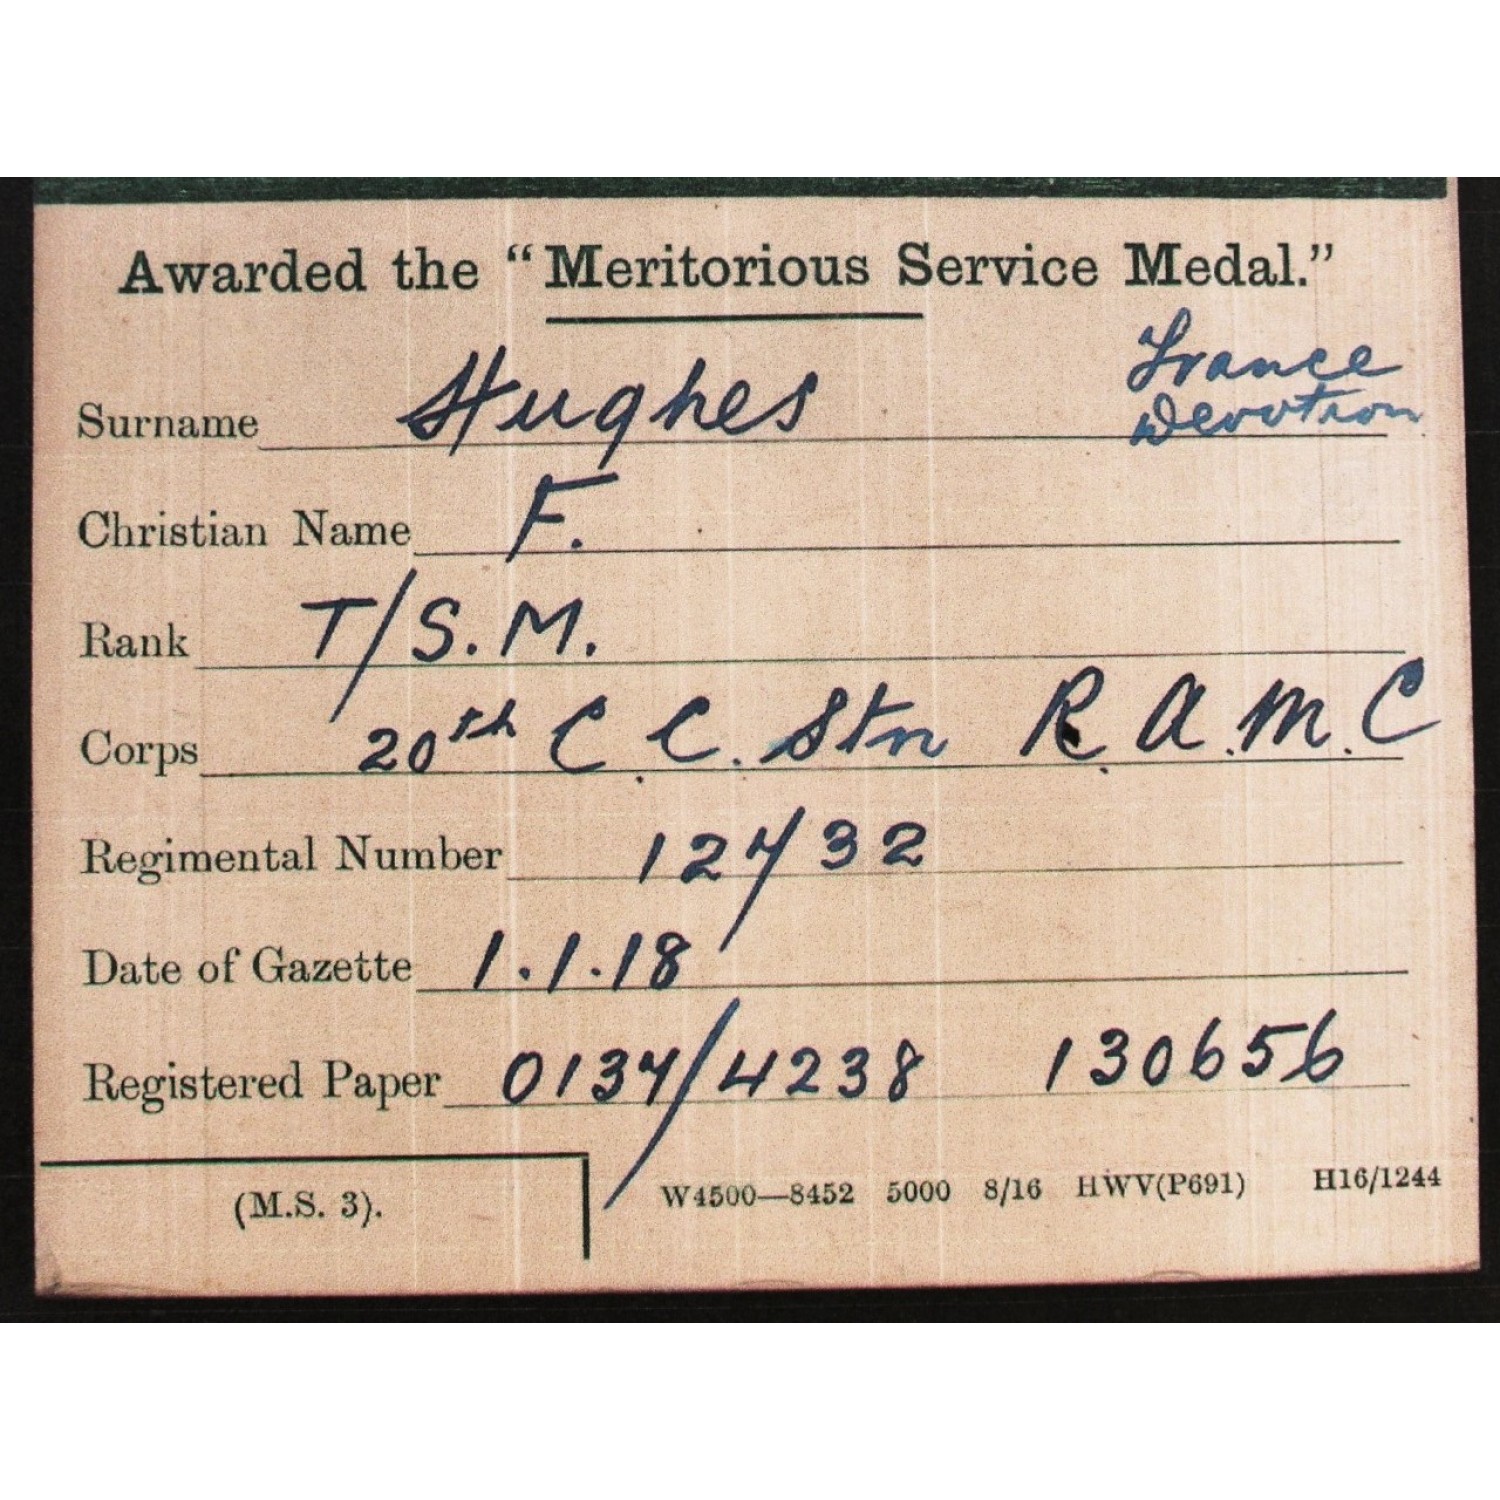 Awarded the “Meritorious Service Medal.”
France
Devotion
Surname Hughes
Christian Name F.
Rank T/S.M.
Corps 20th C.C. Stn R.A.M.C
Regimental Number 12732
Date of Gazette 1.1.18
Registered Paper 0137/4238 130656
(M.S. 3). W4500—8452 5000 8/16 HWV(P691) H16/1244